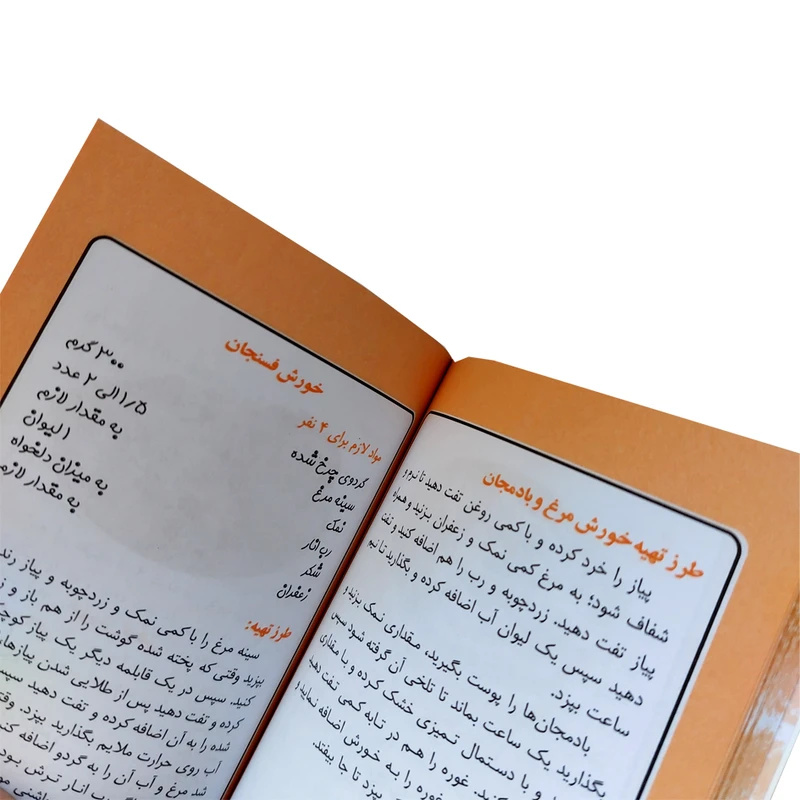 طرز تهیه خورش مرغ و بادمجان
پیاز را خرد کرده و با کمی روغن تفت دهید تا نرم و
شفاف شود؛ به مرغ کمی نمک و زعفران بزنید و همراه
پیاز تفت دهید. زردچوبه و رب را هم اضافه کنید و تفت
دهید سپس یک لیوان آب اضافه کرده و بگذارید تا نیم
ساعت بپزد.
بادمجان‌ها را پوست بگیرید، مقداری نمک بزنید و
بگذارید یک ساعت بماند تا تلخی آن گرفته شود سپس
و با دستمال تمیزی خشک کرده و با مقداری
کنید. غوره را هم در تابه کمی تفت دهید
غوره را به خورش اضافه نمایید و
بپزد تا جا بیفتد.
خورش فسنجان
مواد لازم برای ۴ نفر
گردوی چرخ شده ۳۰۰ گرم
سینه مرغ ۱/۵ الی ۲ عدد
نمک به مقدار لازم
رب انار ۱ لیوان
شکر به میزان دلخواه
زعفران به مقدار لازم
طرز تهیه:
سینه مرغ را با کمی نمک و زردچوبه و پیاز رنده
بپزید وقتی که پخته شده گوشت را از هم باز و
کنید. سپس در یک قابلمه دیگر یک پیاز کوچک
کرده و تفت دهید پس از طلایی شدن پیازها
شده را به آن اضافه کرده و تفت دهید سپس
آب روی حرارت ملایم بگذارید بپزد. وقتی
شد مرغ و آب آن را به گردو اضافه کنید
انار ترش بود